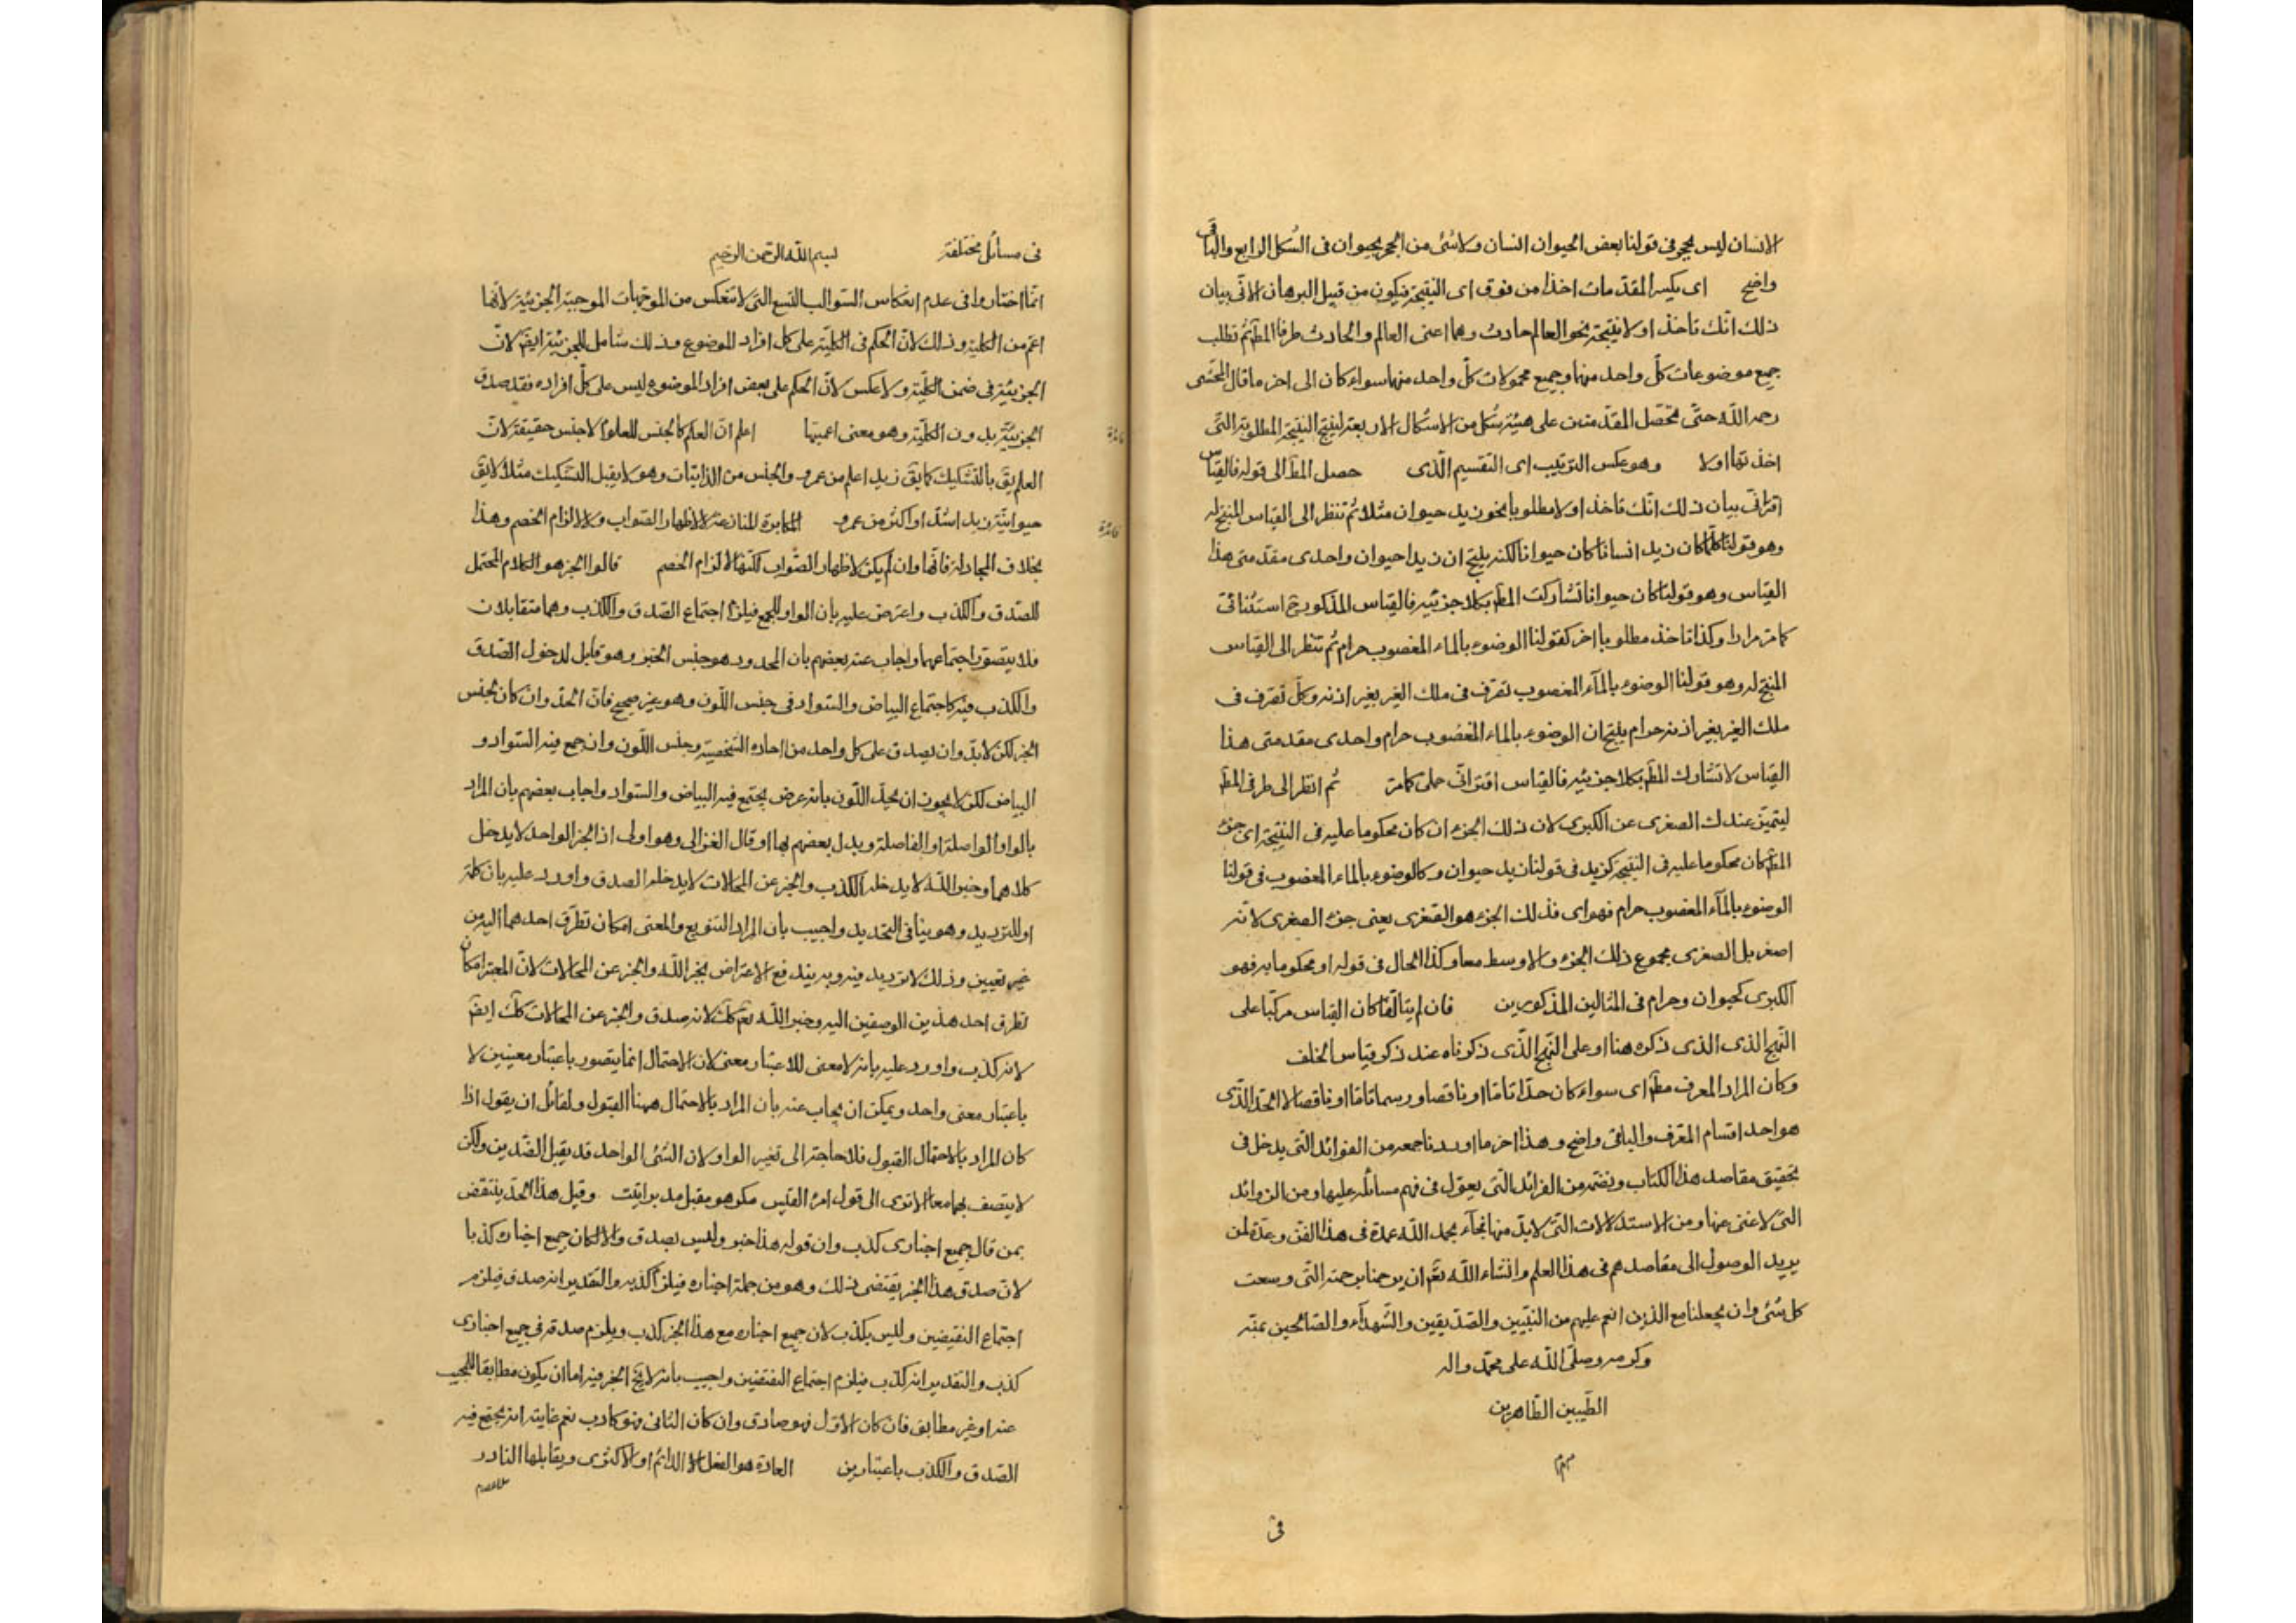 الانسان ليس بحجر فى قولنا بعض الحيوان انسان ولا شئ من الحجر بحيوان فى الشكل الرابع والباقى
واضح اى يكسر المقدمات اخذا من فوق اى النتيجة فيكون من قبيل البرهان الانّى بيان
ذلك انّك تاخذ اولا نتيجة نحو العالم حادث وهما اعنى العالم والحادث طرفا المط ثم تطلب
جميع موضوعات كلّ واحد منهما وجميع محمولات كلّ واحد منهما سواء كان الى اخر ما قال المحشى
رحمه اللّه حتّى تحصّل المقدّمتين على هيئة شكل من الاشكال الاربعة لينتج النتيجة المطلوبة التى
اخذتها اولا وهو عكس الترتيب اى التقسيم الّذى حصل المط الى قوله فالقياس
اقترانّى بيان ذلك انّك تاخذ اولا مطلوبا نحو زيد حيوان مثلا ثم تنظر الى القياس المنتج له
وهو قولنا كلّما كان زيد انسانا كان حيوانا لكنه ينتج ان زيدا حيوان واحدى مقدمتى هذا
القياس وهو قولنا كان حيوانا تشاركت المط بكلا جزئيه فالقياس المذكور ح استثنائى
كما مر مرارا وكذا تاخذ مطلوبا اخر كقولنا الوضوء بالماء المغصوب حرام ثم تنظر الى القياس
المنتج له وهو قولنا الوضوء بالمآء المغصوب تصرّف فى ملك الغير بغير اذنه وكلّ تصرّف فى
ملك الغير بغير اذنه حرام ينتج ان الوضوء بالماء المغصوب حرام واحدى مقدمتى هذا
القياس لا تشارك المط بكلا جزئيه فالقياس اقترانّى حملى كما مر ثم انظر الى طرفى المط
ليتميّز عندك الصغرى عن الكبرى لان ذلك الجزء ان كان محكوما عليه فى النتيجة اى جزء
المط كان محكوما عليه فى النتيجة كزيد فى قولنا زيد حيوان وكالوضوء بالماء المغصوب فى قولنا
الوضوء بالمآء المغصوب حرام فهو اى فذلك الجزء هو الصّغرى يعنى جزء الصغرى لانّه
اصغر بل الصغرى مجموع ذلك الجزء والاوسط معا وكذا الحال فى قوله او محكوما به فهو
الكبرى كحيوان وحرام فى المثالين المذكورين فان لم يتالّفا كان القياس مركّبا على
النّهج الذى الذى ذكره هنا او على النّهج الّذى ذكرناه عند ذكر قياس الخلف
وكان المراد المعرف مط اى سواء كان حدّا تامّا او ناقصا ورسما تامّا او ناقصا لا الحدّ الّذى
هو احد اقسام المعّرف والباقى واضح وهذا اخر ما اوردنا جمعه من الفوائد التى يدخل فى
تحقيق مقاصد هذا الكتاب ونضمّه من الفرائد التى يعوّل فى فهم مسائله عليها ومن الزوائد
التى لا غنى عنها ومن الاستدلالات التى لا بدّ منها فجآء بحمد اللّه عمدة فى هذا الفنّ وعدّة لمن
يريد الوصول الى مقاصدهم فى هذا العلم وانشاء اللّه تعّم ان يرحمنا برحمته التّى وسعت
كل شئ وان يجعلنا مع الذين انعم عليهم من النبّيين والصّدّيقين والشّهدآء والصّالحين بمنّه
وكرمه وصلّى اللّه على محمّد واله
الطّيبين الطّاهرين
فى
فى مسائل مختلفة بسم اللّه الرّحمن الرّحيم
انّما اختاروا فى عدم انعكاس السّوالب التسع التى لا تنعكس من الموجّهات الموجبة الجزئيّة لانّها
اعمّ من الكلية وذلك لانّ الحكم فى الكليّة على كل افراد الموضوع وذلك شامل للجزئيّة ايضّ لانّ
الجزئيّة فى ضمن الكلّية ولا عكس لانّ الحكم على بعض افراد الموضوع ليس على كلّ افراده فقد صدق
الجزئيّة بدون الكلّية وهو معنى اعميّتها اعلم انّ العلم كالجنس للعلوم لا جنس حقيقة لانّ
العلم يقّ بالتّشكيك كما يقّ زيد اعلم من عمرو والجنس من الذاتيّات وهو لا يقبل التشكيك مثلا لا يقّ
حيوانيّة زيد اشدّ او اكثر من عمرو المكابرة المنازعة لا لاظهار الصّواب ولا لالزام الخصم وهذا
بخلاف المجادلة فانّها وان لم يكن لاظهار الصّواب لكنّها لالزام الخصم قالوا الخبر هو الكلام المحتمل
للصّدق والكذب واعترض عليه بان الواو للجمع فيلزم اجتماع الصّدق والكذب وهما متقابلان
فلا يتصوّر اجتماعهما واجاب عنه بعضهم بان المحدود هو جنس الخبر وهو قابل لدخول الصّدق
والكذب فيه كاجتماع البياض والسّواد فى جنس اللّون وهو غير صحيح فانّ الحدّ وان كان لجنس
الخبر لكن لا بدّ وان يصدق على كل واحد من احاده الشخصيّة وجنس اللّون وان جمع فيه السّواد و
البياض لكن لا يجوز ان يحدّ اللّون بانه عرض يجتمع فيه البياض والسّواد واجاب بعضهم بان المراد
بالواو الواصلة او الفاصلة وبدل بعضهم بها او قال الغزالى وهو اولى اذ الخبر الواحد لا يدخل
كلاهما وخبر اللّه لا يدخله الكذب والخبر عن المحالات لا يدخله الصدق واورد عليه بان كلمة
او للترديد وهو ينافى التحديد واجيب بان المراد التنويع والمعنى امكان تطرّق احدهما اليه من
غير تعيين وذلك لا ترديد فيه وبه يندفع الاعتراض بخبر اللّه والخبر عن المحالات لانّ المعتبر امكان
تطرق احد هذين الوصفين اليه وخبر اللّه تعّم كلّ لانه صدق والخبر عن المحالات كلّ ايضّ
لانه كذب واورد عليه بانه لا معنى للاعتبار معنى لان الاحتمال انما يتصور باعتبار معنيين لا
باعتبار معنى واحد ويمكن ان يجاب عنه بان المراد بالاحتمال ههنا القبول ولقائل ان يقول اذا
كان المراد بالاحتمال القبول فلا حاجة الى تغير الواو لان الشّئ الواحد قد يقبل الضّدين ولكن
لا يتصف بهما معا الا ترى الى قول امرئ القيس مكر هو مقبل مدبر وقيل هذا الحدّ ينتقض
بمن قال جميع اخبارى كذب وان قوله هذا خبر وليس بصدق والا لكان جمع اخباره كذبا
لانّ صدق هذا الخبر يقتضى ذلك وهو من جملة اخباره فيلزم كذبه والتقدير انه صدق فيلزم
اجتماع النقيضين وليس بكذب لان جميع اخباره مع هذا الخبر كذب ويلزم صدقه فى جميع اخبارى
كذب والتقدير انه كذب فيلزم اجتماع النقيضين واجيب بانه لا يخّ الخبر فيه اما ان يكون مطابقا للمجيب
عنه او غير مطابق فان كان الاوّل فهو صادق وان كان الثانى فهو كاذب نعم غايته انه يجتمع فيه
الصّدق والكذب باعتبارين العادة هو الفعل الدائم او الاكثرى ويقابلها النادر